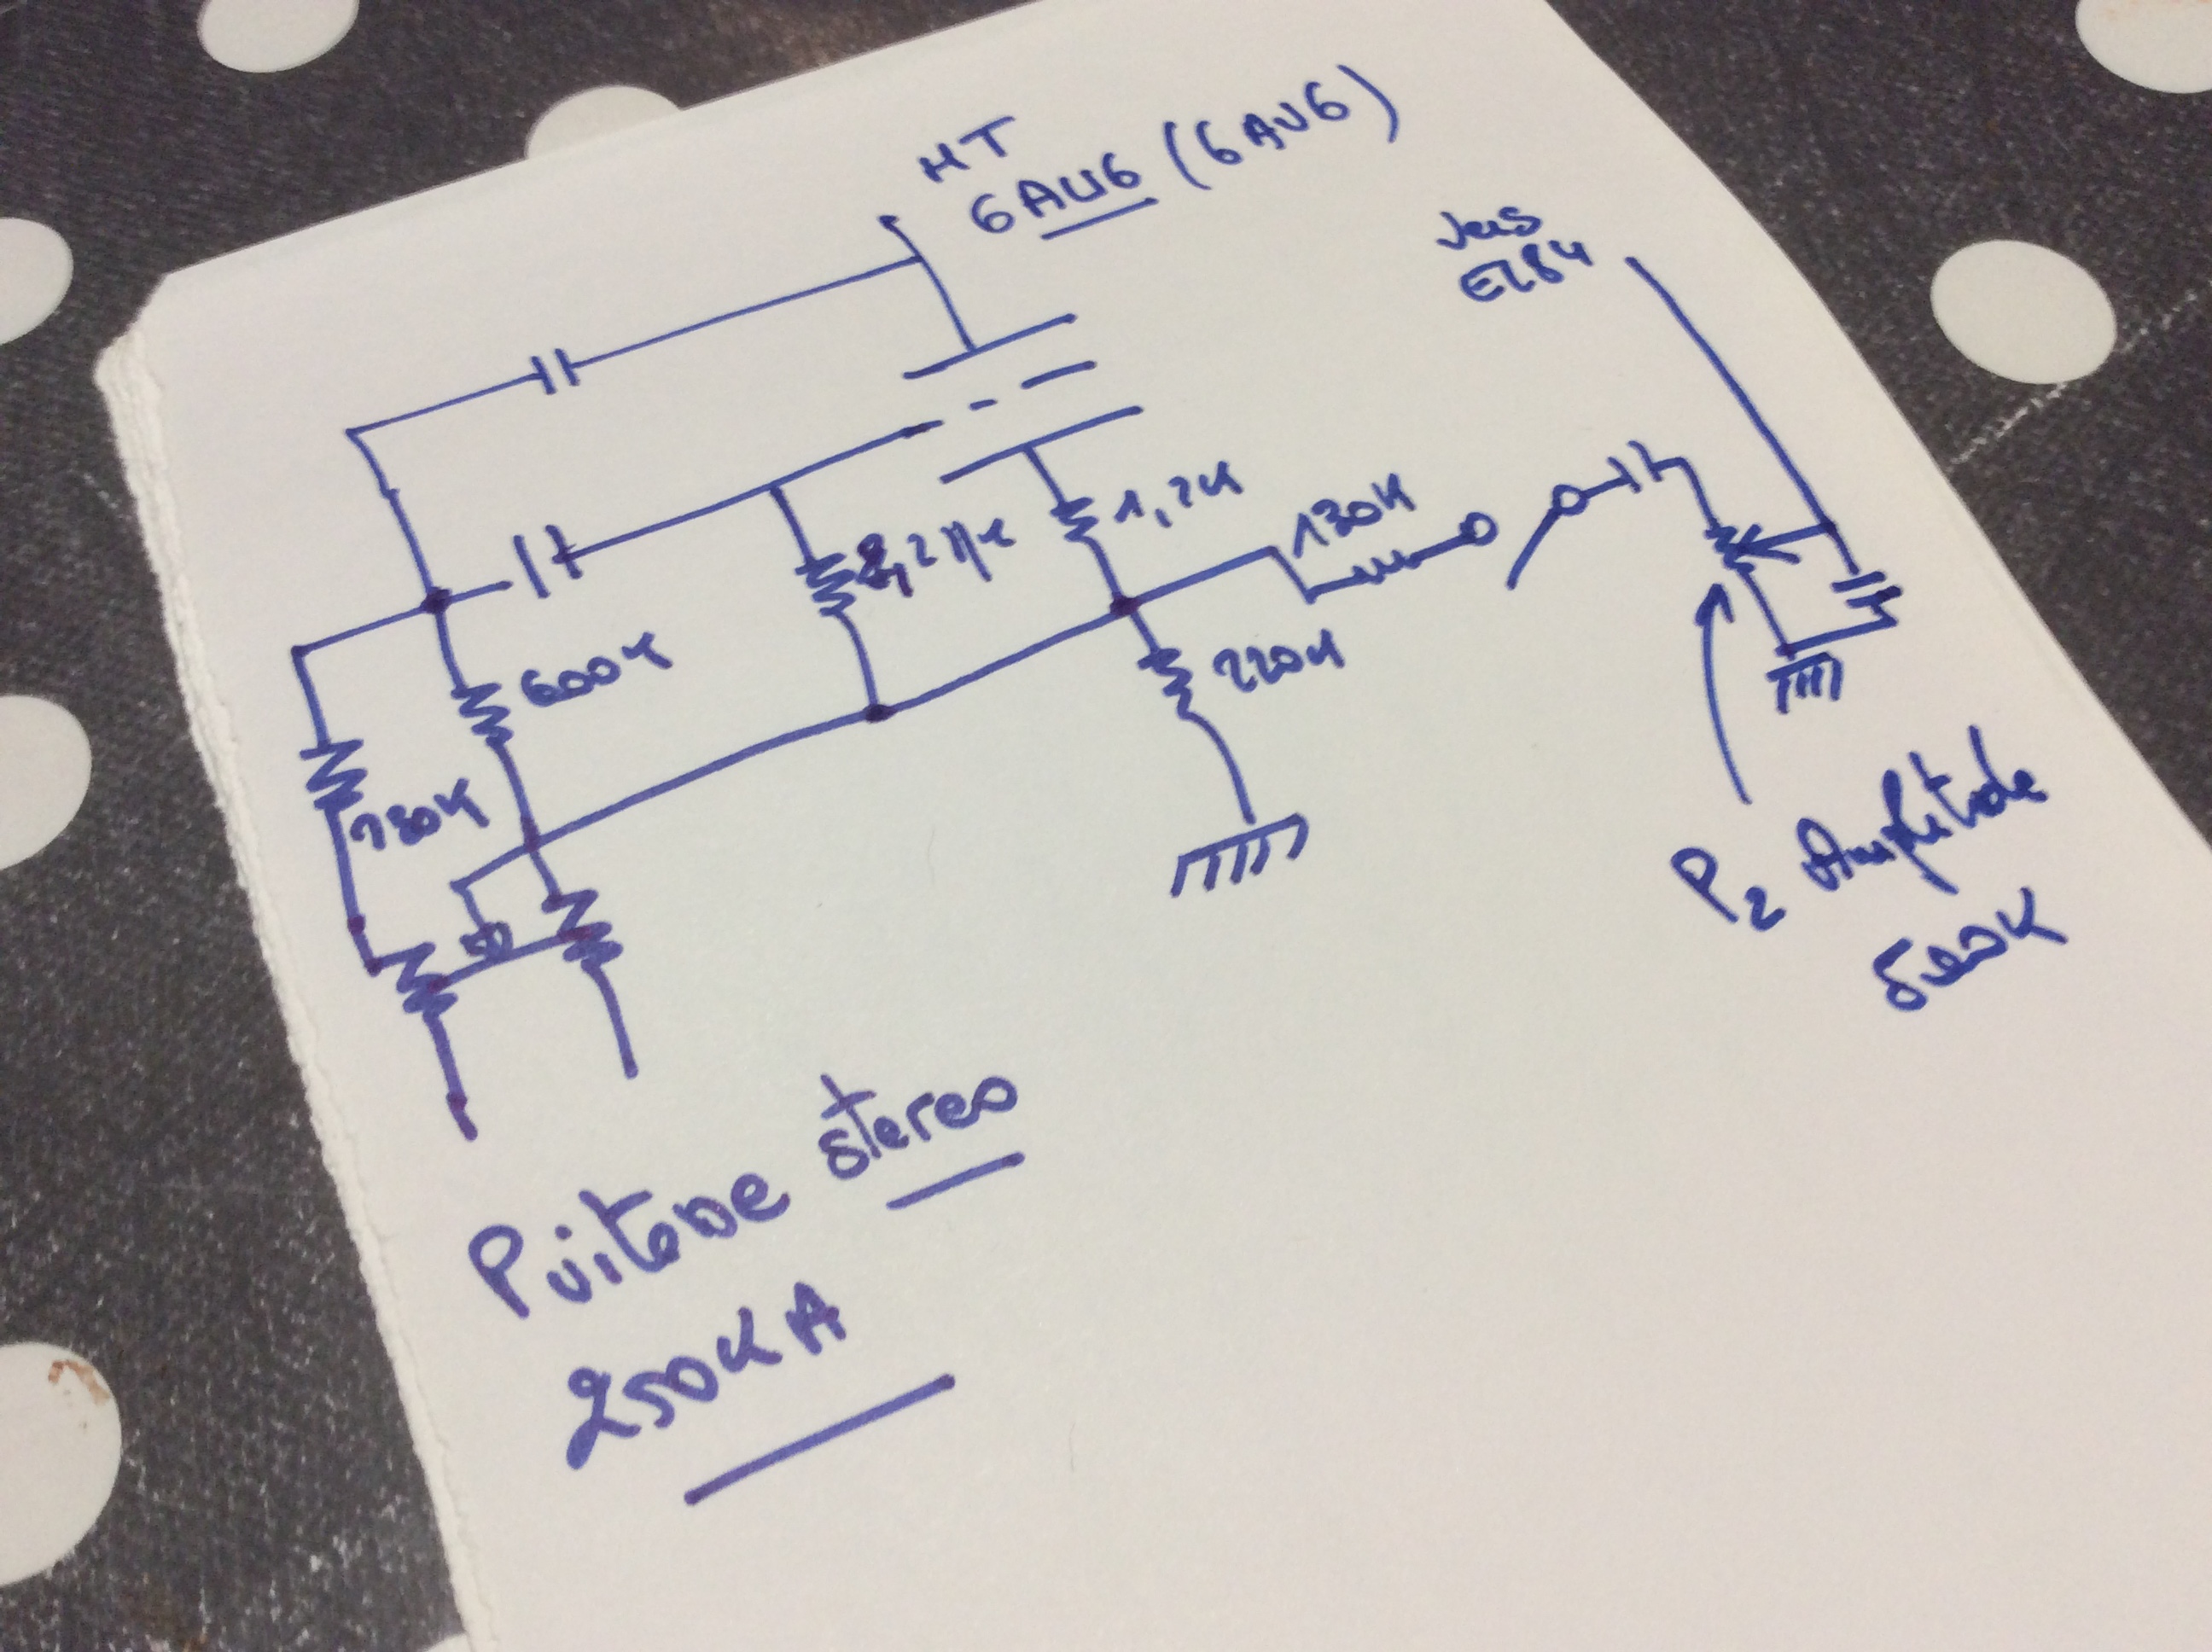 HT
6AU6 (6AV6)
vers
EL84
1,2K
130K
2,2M
600K
220K
130K
P2 Amplitude
500K
stereo
250K A